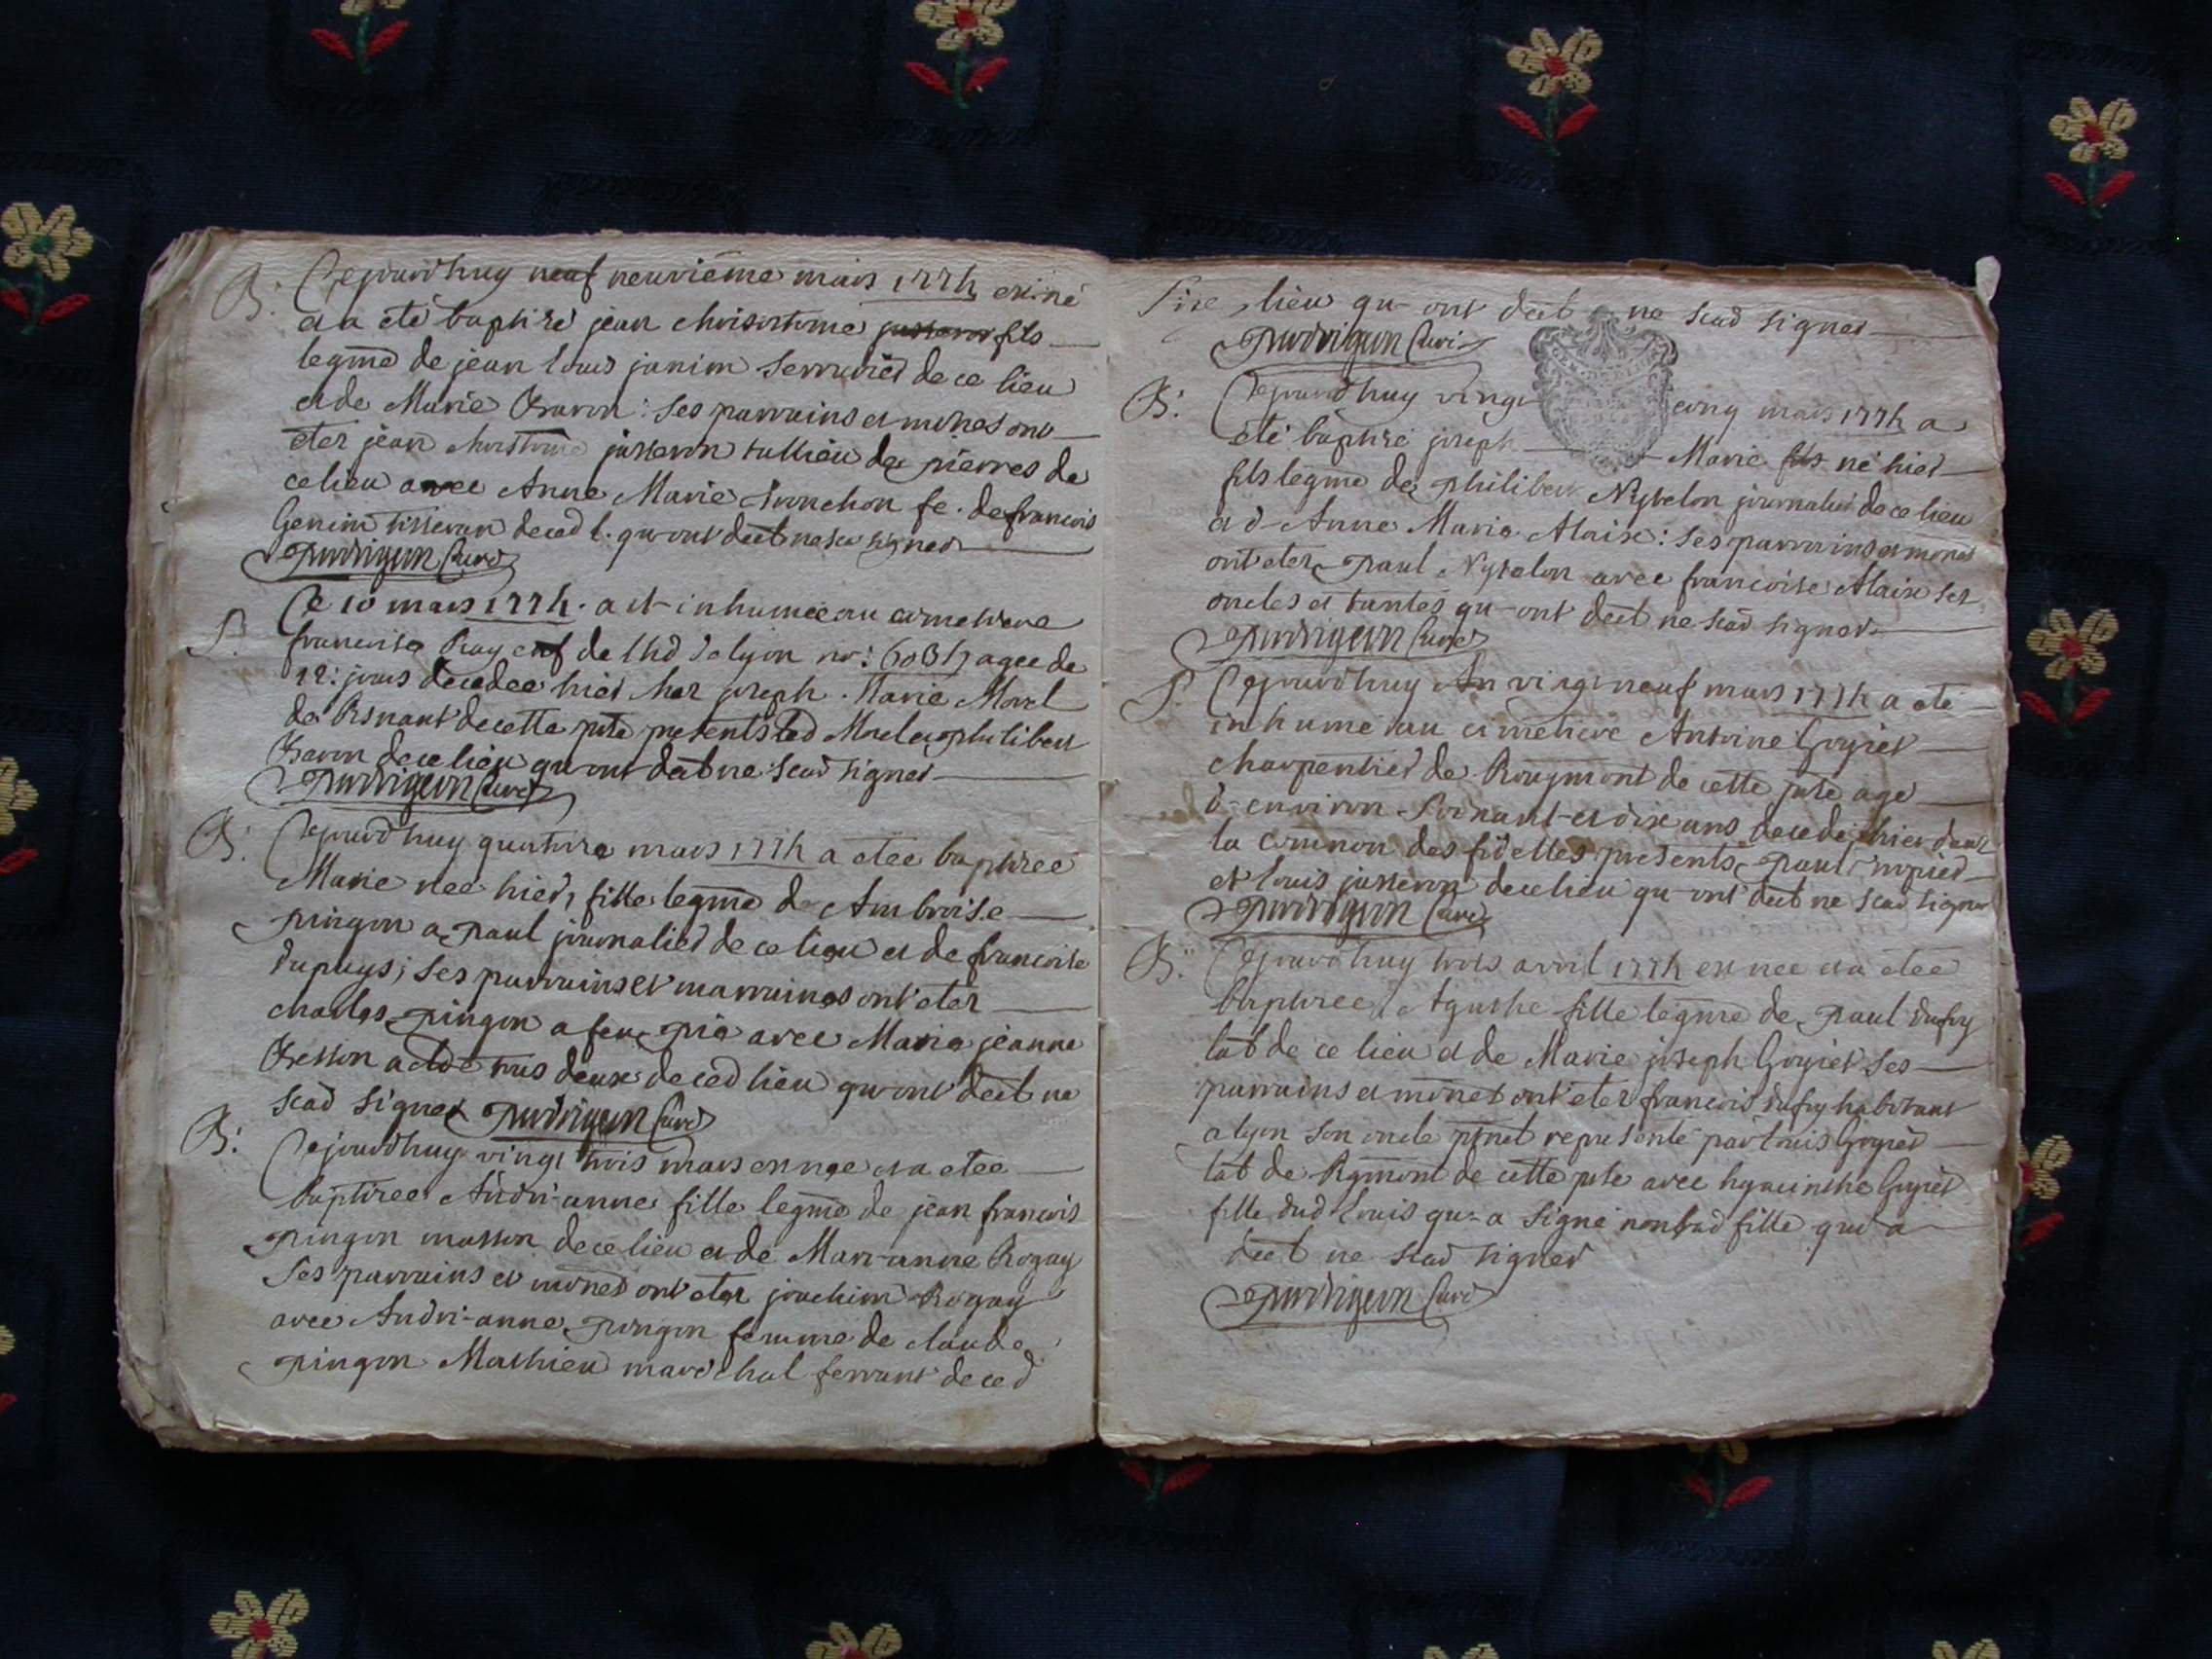 B. Cejourdhuy neuf neuvième mars 1774 est né
et a eté baptisé jean chrisostome fils
legme de jean louis janim serrurier de ce lieu
et de Marie : ses parrains et mrnes ont
eter jean jusseron tallieu de pierres de
celieu avec Anne Marie fe. de francois
Genim tisseran de ced l. qu-ont déct ne sca signer
Curé
S. Ce 10 mars 1774. a et- inhumée au cimetiere
francoise Ray enf de lhd de lyon no: agée de
12: jours decedee hier chez joseph. Marie Morel
de de cette pste presents led Morel et philibert
de ce lieu qu ont dect ne scad signer
Curé
B. Cejourdhuy quatorze mars 1774 a etee baptisée
Marie née hier, fille legme de Ambroise
pingon a paul journalier de ce lieu et de francoise
dupuys; ses parrains et marraines ont eter
charles pingon a feu avec Marie jeanne
tous deux de ced lieu qu ont dect ne
scad signer Curé
B. Cejourdhuy vingt trois mars est nee et a etee
baptisee Andri-anne fille legme de jean francois
pingon masson de ce lieu et de Mari-anne Rogay
Ses parrains et mrnes ont eter joachim Rogay
avec Andri-anne pingon femme de claude
pingon Mathieu marechal ferrant de ced
lieu qu- ont dect ne scad signer
Curé
B. Cejourdhuy vingt cinq mars 1774 a
eté baptisé joseph Marie fils né hier
fils legme de philibert Nyvelon journalier de ce lieu
et d-Anne Marie Alaix : ses parrains et mrnes
ont eter paul Nyvelon avec francoise Alaix ses
oncles et tantes qu-ont dect ne scad signer
Curé
S. Cejourdhuy vingt neuf mars 1774 a eté
inhumé au cimetiere Antoine Goyiet
charpentier de Rougmont de cette pste agé
d-environ soixant-et dix ans decedé hier dans
la common des fidelles presents paul
et louis jusseron de ce lieu qu-ont dect ne scad signer
Curé
B. Cejourdhuy trois avril 1774 est nee et a etee
baptisee Agathe fille legme de paul dufey
lab de ce lieu et de Marie joseph Goyiet ses
parrains et mrnes ont eter francois dufey habitant
a lyon son oncle representé par louis Goyiet
lab de Rgmont de cette pste avec hyacinthe Goyiet
fille dud louis qu-a signé non lad fille qui a
dect ne scad signer
Curé